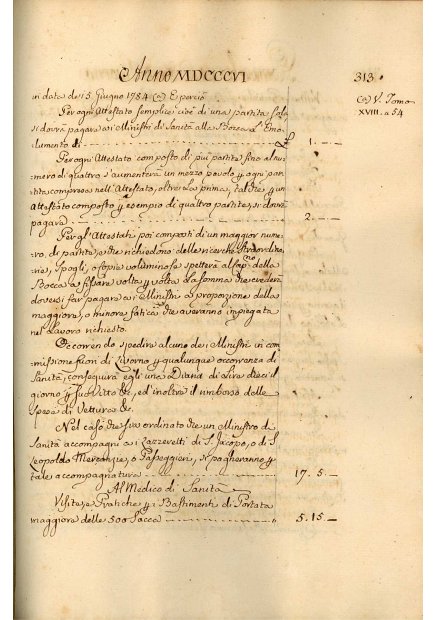 Anno MDCCCVI
313
in data de 15. Giugno 1784 (a) E perciò
(a) V. Tomo
XVIII. a 54
Per ogni Attestato semplice cioè di una partita sola
si dovrà pagare ai Ministri di Sanità alla Bocca l'Emo-
lumento di 1. —
Per ogni Attestato composto di più partite fino al nu-
mero di quattro s'aumenterà un mezzo pavolo p ogni par-
tita compresa nell'Attestato, oltre la prima, tal che p un
Attestato composto p esempio di quattro partite, si dovrà
pagare 2. —
Per gl'Attestati poi composti di un maggior nume-
ro, di partite, e che richiedono delle ricerche straordina-
rie, Spogli, o copie voluminose spetterà al Capno della
Bocca a fissare volta p volta la somma che crederà
doversi far pagare ai Ministri a proporzione della
maggiore, o minore fatica che averanno impiegata
nel Lavoro richiesto.
Occorrendo spedire alcuno dei Ministri in com-
missione fuori di Livorno p qualunque occorrenza di
Sanità, conseguirà egli una Diaria di Lire dieci il
giorno p suo Vitto &c, ed inoltre il rimborso delle
spese di Vetture &c.
Nel caso che sia ordinato che un Ministro di
Sanità accompagni ai Lazzeretti di S. Jacopo, o di S.
Leopoldo Mercanzie, o Passeggieri, si pagheranno p
tale accompagnatura 17. 5. —
Al Medico di Sanità
Visita, e Pratiche p i Bastimenti di Portata
maggiore delle 500 Sacca 5. 15. —